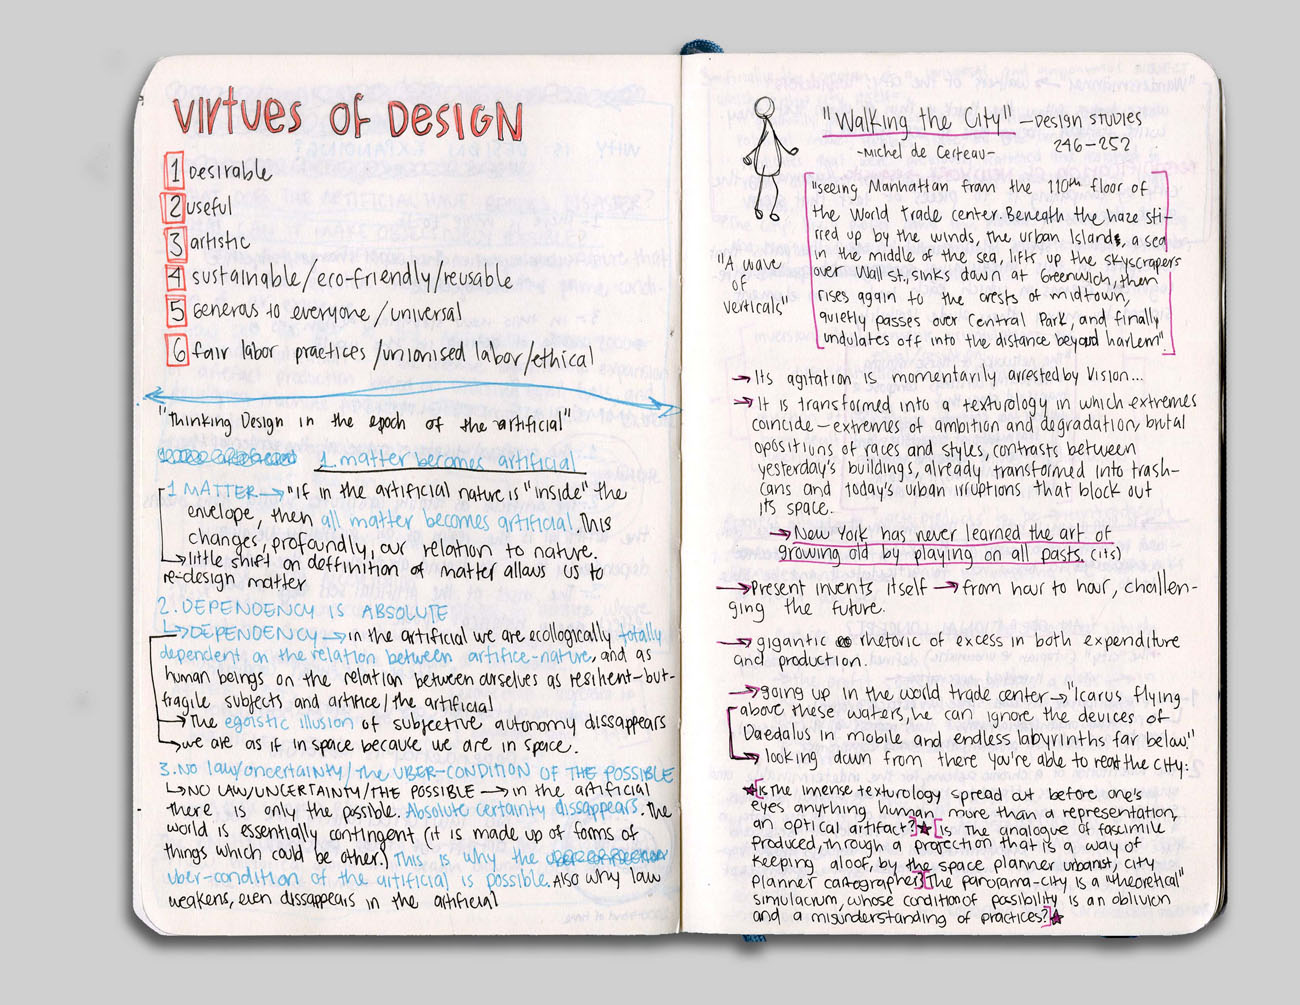 Virtues of Design
1 desirable
2 useful
3 artistic
4 sustainable/eco-friendly/reusable
5 Generas to everyone/universal
6 fair labor practices/unionised labor/ethical
"Thinking Design in the epoch of the artificial"
1. matter becomes artificial
1 MATTER → "If in the artificial nature is "inside" the
envelope, then all matter becomes artificial. This
changes, profoundly, our relation to nature.
little shift on deffinition of matter allows us to
re-design matter
2. DEPENDENCY IS ABSOLUTE
DEPENDENCY → in the artificial we are ecollogically totally
dependent on the relation between artifice-nature, and as
human beings on the relation between ourselves as resilient-but-
fragile subjects and artifice/the artificial
The egoistic illusion of subjective autonomy dissappears
we are as if in space because we are in space.
3. NO law/uncertainty/the UBER-CONDITION OF THE POSSIBLE
NO LAW/UNCERTAINTY/THE POSSIBLE → in the artificial
there is only the possible. Absolute certainty dissappears. The
world is essentially contingent (it is made up of forms of
things which could be other.) This is why the
uber-condition of the artificial is possible. Also why law
weakens, even dissappears in the artificial
"Walking the City" – DESIGN STUDIES
-Michel de Certeau- 246-252
"seeing Manhattan from the 110th floor of
the World Trade center. Beneath the haze sti-
rred up by the winds, the urban Island, a sea
in the middle of the sea, lifts up the skyscrapers
over Wall st, sinks down at Greenwich, then
rises again to the crests of midtown,
quietly passes over Central Park, and finally
undulates off into the distance beyond harlem".
"A wave
of
verticals"
→ Its agitation is momentarily arrested by Vision...
→ It is transformed into a texturology in which extremes
coincide – extremes of ambition and degradation, brutal
opositions of races and styles, contrasts between
yesterday's buildings, already transformed into trash-
cans and today's urban irruptions that block out
its space.
→ New York has never learned the art of
growing old by playing on all pasts. (its)
→ Present invents itself → from hour to hour, challen-
ging the future.
→ gigantic rhetoric of excess in both expenditure
and production.
→ going up in the world trade center → "Icarus flying
above these waters, he can ignore the devices of
Daedalus in mobile and endless labyrinths far below."
→ looking down from there you're able to read the city:
★ [is the imense texturology spread out before one's
eyes anything human more than a representation,
an optical artifact?] ★ [is the analogue of fascimile
produced, through a projection that is a way of
keeping aloof, by the space planner urbanist, city
planner cartographer?] [The panorama-city is a "theoretical"
simulacrum, whose condition of posibility is an oblivion
and a misunderstanding of practices?] ★